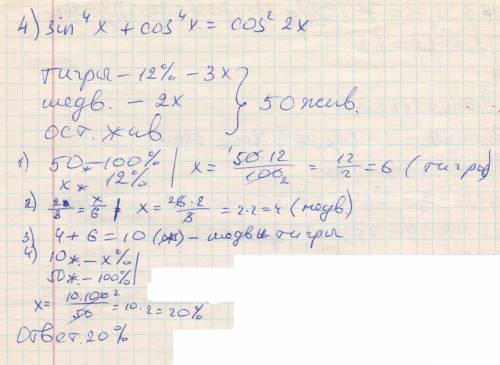 4) sin⁴x + cos⁴x = cos² 2x
тигры – 12% – 3x
медв. – 2x
ост. жив.
} 50 жив.
1) 50ж – 100% | x = 50·12/100 = 12/2 = 6 (тигры)
xж 12%
2) 2/3 = x/6 | x = 6·2/3 = 2·2 = 4 (медв)
3) 4 + 6 = 10 (ж) – медв и тигры
4) 10ж. – x% |
50ж – 100% |
x = 10·100²/50 = 10·2 = 20%
Ответ: 20%